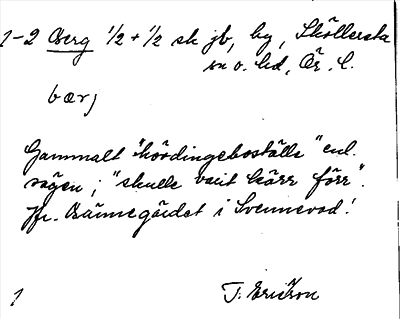 1-2 Berg 1/2 + 1/2 sk jb, by, Sköllersta
sn o. hd, Ör. l.
bærj
Gammalt "hövdingeboställe" enl.
sägen; "skulle varit kärr förr".
Jfr. Bännegärdet i Svennevad!
1 T. Ericson